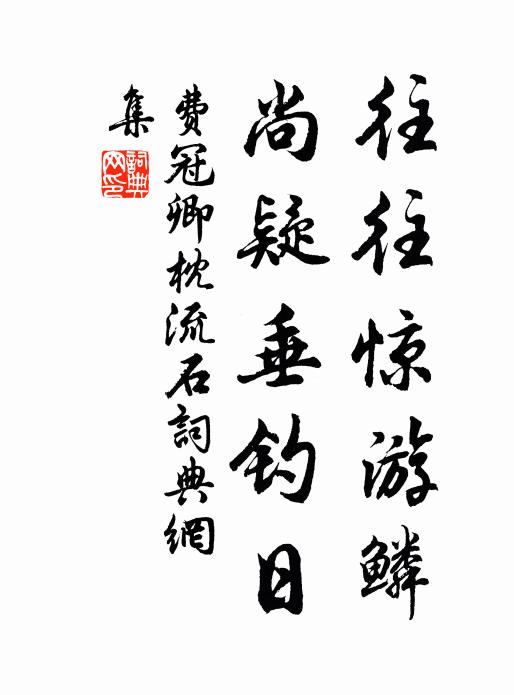 往往惊游鳞
尚疑垂钓日
费冠卿枕流石詞典網
集
詞典网印